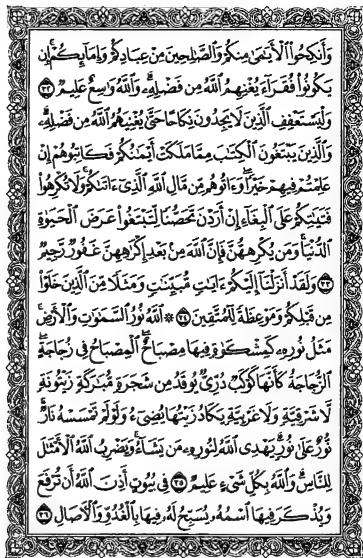 وَأَنكِحُوا۟ ٱلْأَيَٰمَىٰ مِنكُمْ وَٱلصَّٰلِحِينَ مِنْ عِبَادِكُمْ وَإِمَآئِكُمْ ۚ إِن
يَكُونُوا۟ فُقَرَآءَ يُغْنِهِمُ ٱللَّهُ مِن فَضْلِهِۦ ۗ وَٱللَّهُ وَٰسِعٌ عَلِيمٌ ٣٢
وَلْيَسْتَعْفِفِ ٱلَّذِينَ لَا يَجِدُونَ نِكَاحًا حَتَّىٰ يُغْنِيَهُمُ ٱللَّهُ مِن فَضْلِهِۦ ۗ
وَٱلَّذِينَ يَبْتَغُونَ ٱلْكِتَٰبَ مِمَّا مَلَكَتْ أَيْمَٰنُكُمْ فَكَاتِبُوهُمْ إِنْ
عَلِمْتُمْ فِيهِمْ خَيْرًا ۖ وَءَاتُوهُم مِّن مَّالِ ٱللَّهِ ٱلَّذِىٓ ءَاتَىٰكُمْ ۚ وَلَا تُكْرِهُوا۟
فَتَيَٰتِكُمْ عَلَى ٱلْبِغَآءِ إِنْ أَرَدْنَ تَحَصُّنًا لِّتَبْتَغُوا۟ عَرَضَ ٱلْحَيَوٰةِ
ٱلدُّنْيَا ۚ وَمَن يُكْرِههُّنَّ فَإِنَّ ٱللَّهَ مِنۢ بَعْدِ إِكْرَٰهِهِنَّ غَفُورٌ رَّحِيمٌ
٣٣ وَلَقَدْ أَنزَلْنَآ إِلَيْكُمْ ءَايَٰتٍ مُّبَيِّنَٰتٍ وَمَثَلًا مِّنَ ٱلَّذِينَ خَلَوْا۟
مِن قَبْلِكُمْ وَمَوْعِظَةً لِّلْمُتَّقِينَ ٣٤ ۞ ٱللَّهُ نُورُ ٱلسَّمَٰوَٰتِ وَٱلْأَرْضِ ۚ
مَثَلُ نُورِهِۦ كَمِشْكَوٰةٍ فِيهَا مِصْبَاحٌ ۖ ٱلْمِصْبَاحُ فِى زُجَاجَةٍ ۖ
ٱلزُّجَاجَةُ كَأَنَّهَا كَوْكَبٌ دُرِّىٌّ يُوقَدُ مِن شَجَرَةٍ مُّبَٰرَكَةٍ زَيْتُونَةٍ
لَّا شَرْقِيَّةٍ وَلَا غَرْبِيَّةٍ يَكَادُ زَيْتُهَا يُضِىٓءُ وَلَوْ لَمْ تَمْسَسْهُ نَارٌ ۚ
نُّورٌ عَلَىٰ نُورٍ ۗ يَهْدِى ٱللَّهُ لِنُورِهِۦ مَن يَشَآءُ ۚ وَيَضْرِبُ ٱللَّهُ ٱلْأَمْثَٰلَ
لِلنَّاسِ ۗ وَٱللَّهُ بِكُلِّ شَىْءٍ عَلِيمٌ ٣٥ فِى بُيُوتٍ أَذِنَ ٱللَّهُ أَن تُرْفَعَ
وَيُذْكَرَ فِيهَا ٱسْمُهُۥ يُسَبِّحُ لَهُۥ فِيهَا بِٱلْغُدُوِّ وَٱلْءَاصَالِ ٣٦